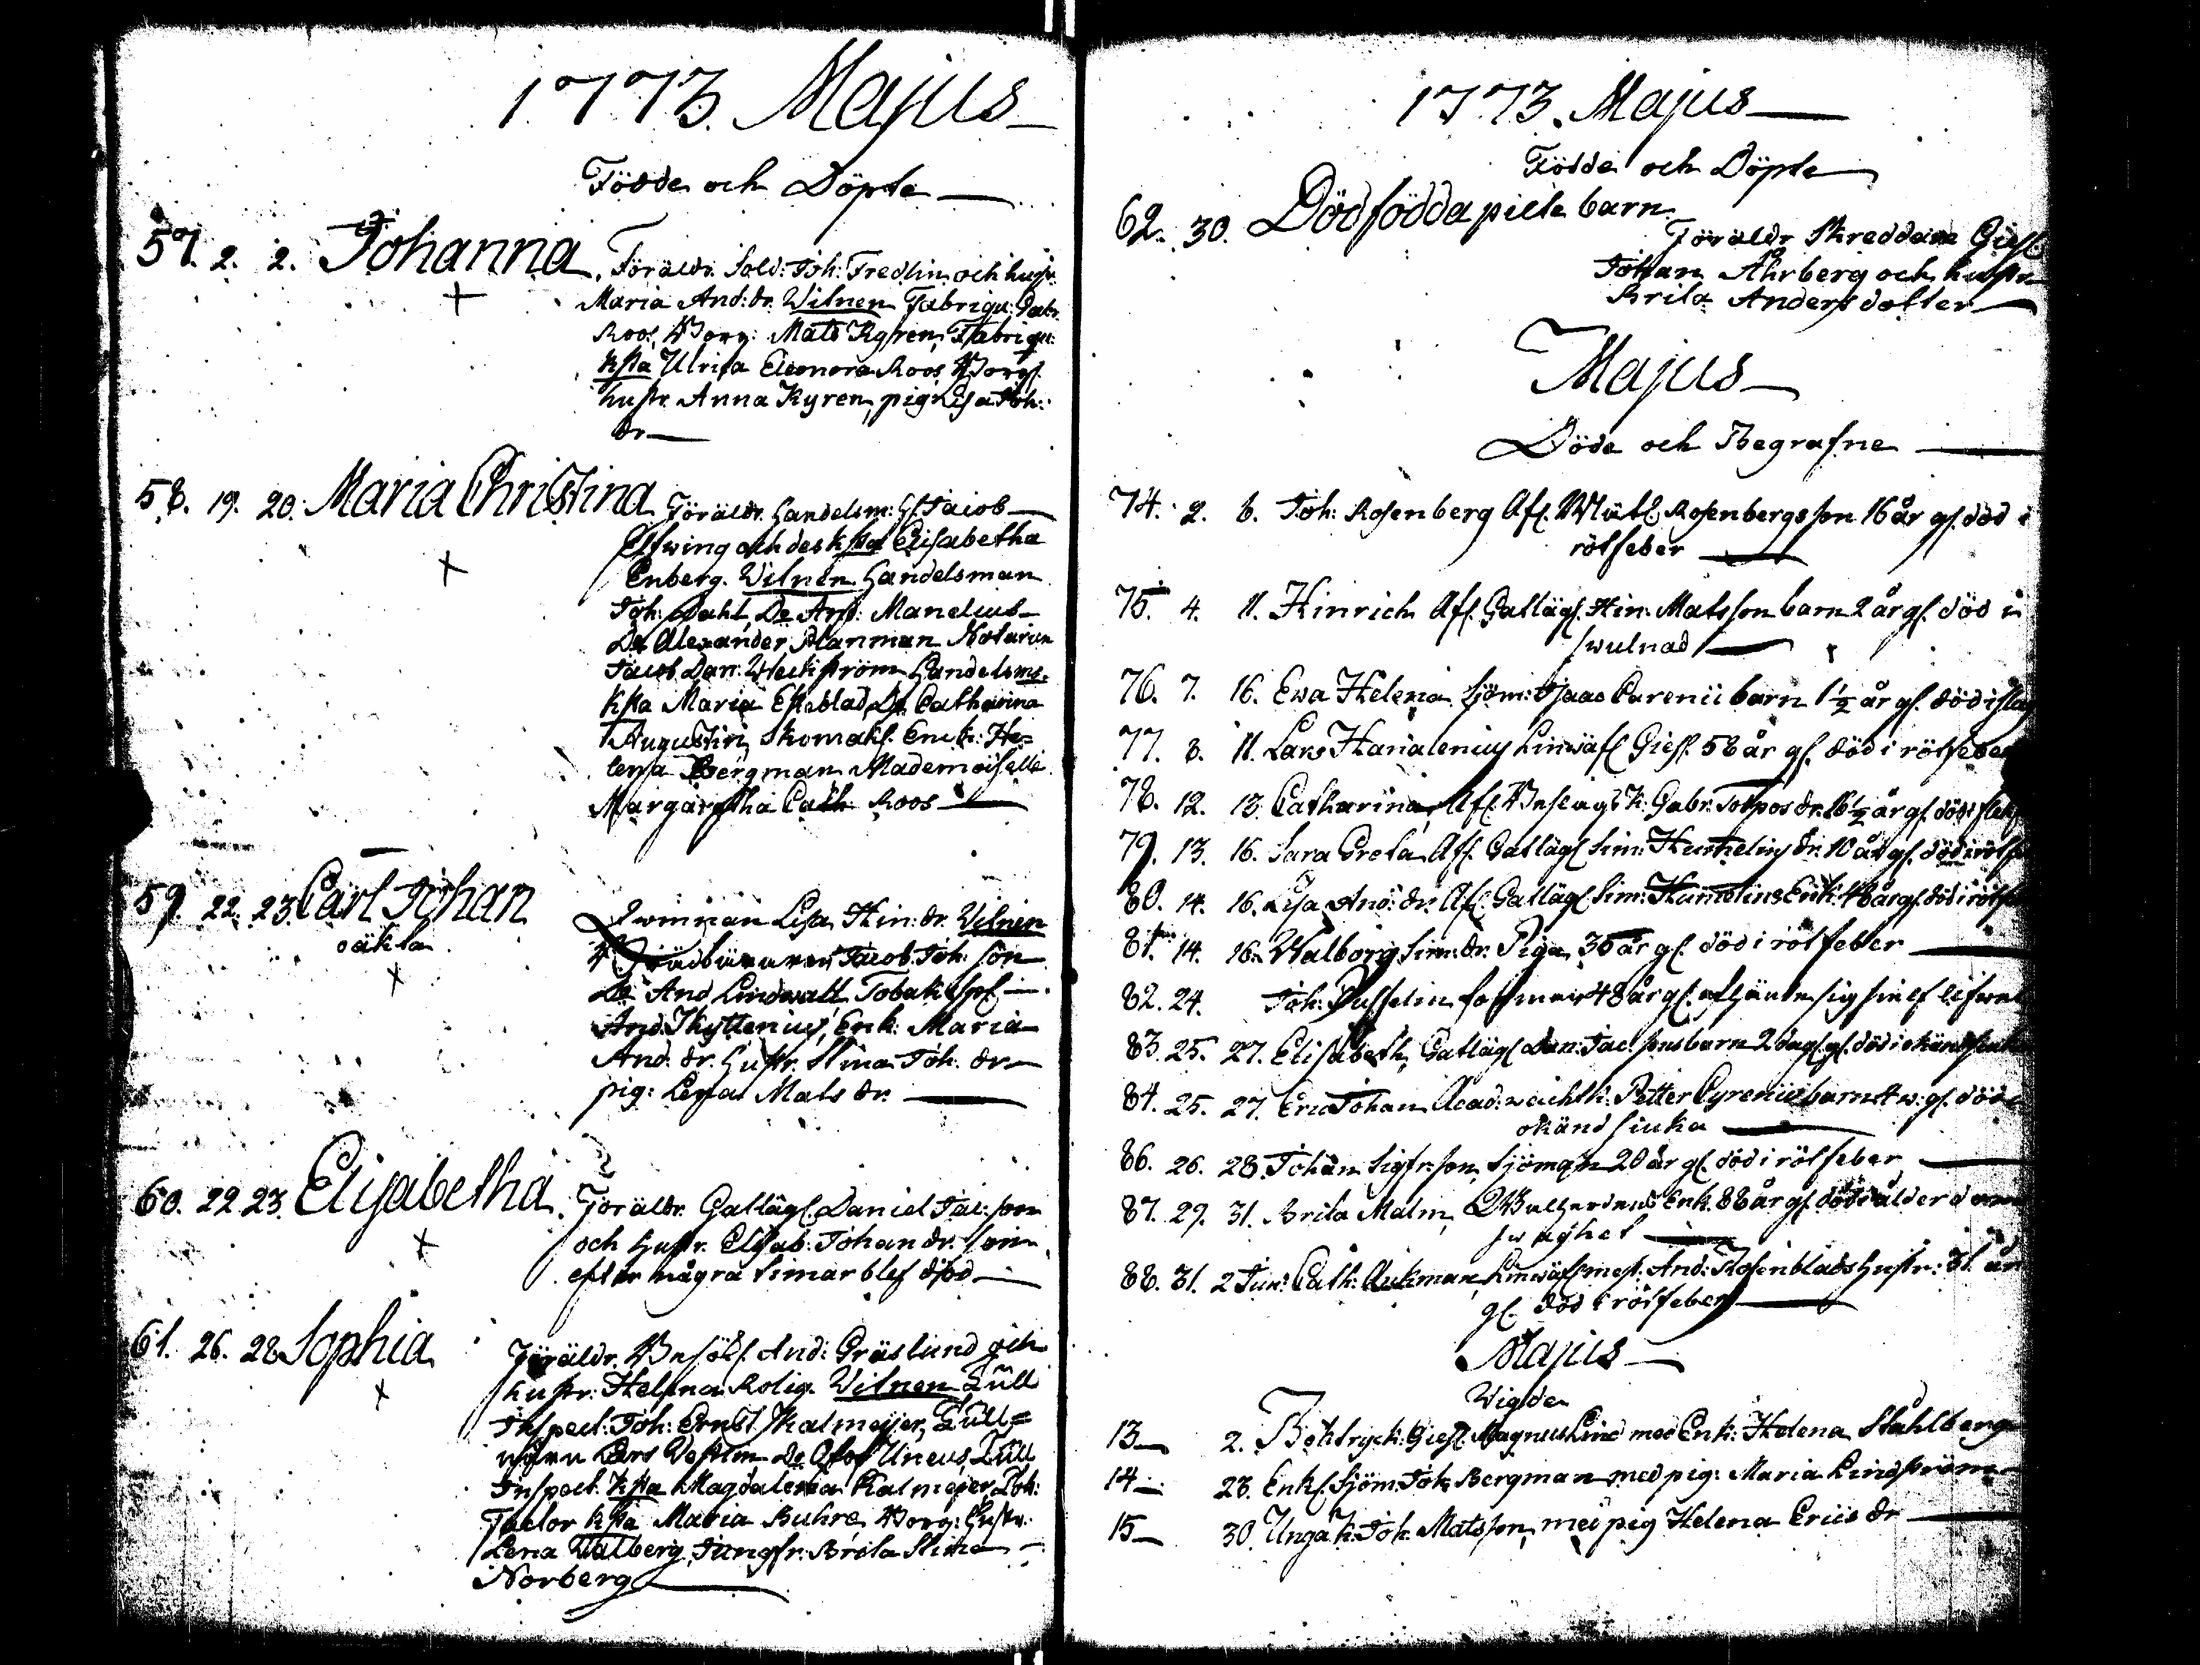 1773. Majus
Födde och Döpte
57. 2. 2. Johanna. Föräldr. Sold: Joh: Fredlin och hustr.
Maria And: dr. Witnen Fabriqu:
Roos, Borg: Mats Kyren, Fabriqu:
Ksta Ulrica Eleonora Roos, Borg.
hustr. Anna Kyren, pig: Lisa Joh:
dr
58. 19. 20. Maria Christina Föräldr. Handelsm: H. Jacob
Elfwing och des Ksta Elisabetha
Enberg. Witnen Handelsman
Joh: Dahl, Do Arfd: Manelius
Do Alexander Planman Notarien
Jacob Dan: Weckström Handelsms.
Ksta Maria Ekeblad, Do Catharina
Augustin, Skomak. Enck: He=
lena Bergman Mademoiselle
Margaretha Cath: Roos
59. 22. 23. Carl Johan
oäkta
Qwinnan Lisa Hin: dr. Witnen
Jacob Joh: son
Do And Lindwall Tobakssp.
And: Thyllenius, Enk: Maria
And: dr. Hustr. Stina Joh: dr
pig: Lena Mats dr.
60. 22 23. Elisabetha. Föräldr. Gatläg. Daniel Jac: son
och Hustr. Elisab: Johan dr. som
efter några timar blef död
61. 26. 28 Sophia
Föräldr. Besök. And: Gräslund och
hustr: Helena Rolig. Witnen Tull
Inspect: Joh: Ernst Kalmeijer, Tull=
Lars Do Olof Uneus, Tull
Inspect. Ksta Magdalena Kalmeijer, Tob:
Factor Ksta Maria Buhre, Borg: Hustr:
Lena Walberg, Jungfr: Brita Stina
Norberg
1773. Majus
Födde och Döpte
62. 30. Dödfödda pilte barn.
Föräldr Skreddare Gies.
Johan Åhrberg och hustr
Brita Anders dotter
Majus
Döde och Begrafne
74. 2. 8. Joh: Rosenberg Afl. Rosenbergs son 16 år gl. död i
rötfeber
75. 4. 11. Hinrich Afl. Gatläg. Hin: Matsson barn 2 år gl. död i
swulnad
76. 7. 16. Ewa Helena Sjöm: Isaac Carenii barn 1 1/2 år gl. död i slag
77. 8. 11. Lars Linwäf. Gies. 58 år gl. död i rötfeber
78. 12. 13. Catharina, Afl. K: Gabr: dr. 16 1/2 år gl. död i
79. 13. 16. Sara Greta Afl. Gatläg. Sim: dr. 10 år gl. död i rötf
80. 14. 16. Lisa And: dr. Afl. Gatläg. Sim: Enk: 48 år gl. död i rötf
81. 14. 16. Walborg Sim: dr. Piga 36 år gl. död i rötfeber
82. 24. Joh: 48 år gl. sig sielf lifwet
83. 25. 27. Elisabeth, Gatläg. Dan: Jac: sons barn 2 dag. gl. död i okänd siuk
84. 25. 27. Eric Johan Acad: wachtk: Petter Cyrenii barn 4 w: gl. död
okänd siuka
86. 26. 28. Johan Sigfr: son, Sjöman 20 år gl. död i rötfeber
87. 29. 31. Brita Malm, Enk. 88 år gl. död i ålderdoms
swaghet
88. 31. 2 Jun: Cath: Aukman, Linwäf mest. And: Rosenblads Hustr: 31 år
gl. död i rötfeber
Majus
Wigde
13 2. Boktryck: Gies. Magnus Lind med Enk: Helena Stahlberg
14 28. Enkl. Sjöm. Joh Bergman med pig: Maria Lindström
15 30. Unga K: Joh: Matsson, med pig Helena Erics dr